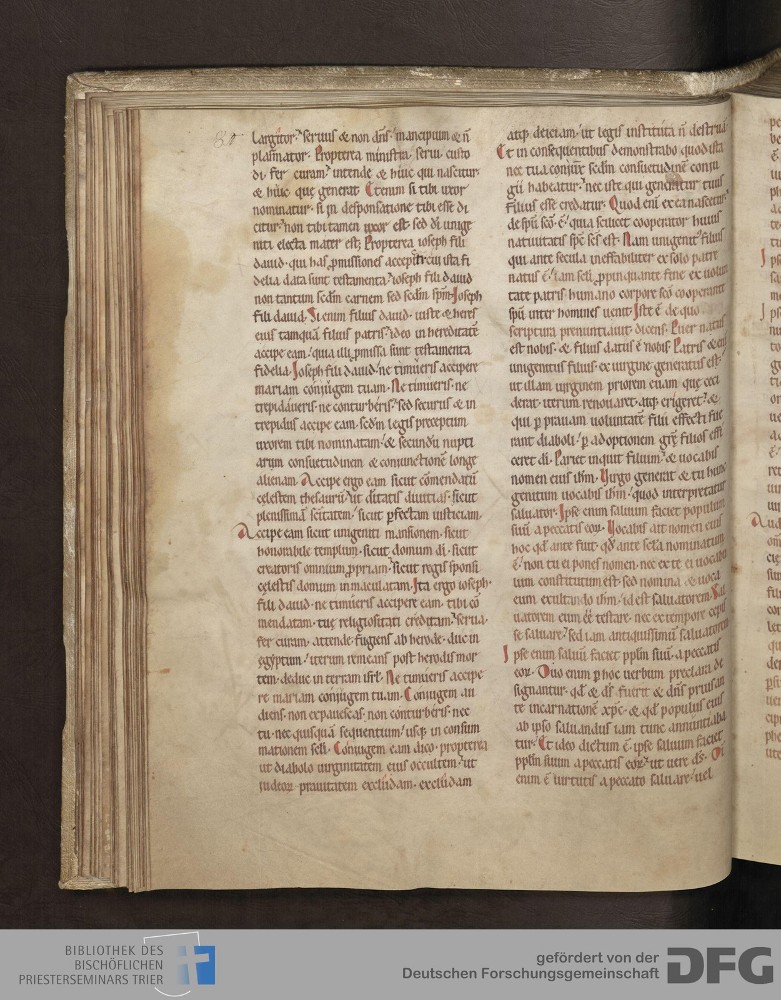 80
largitor. seruus & non dn̄s. mancipium & n̄
plasmator. Propterea ministra. serui. custo
di. fer curam. intende & huic qui nascitur.
& huic que generat. Etenim si tibi uxor
nominatur. si in desponsatione tibi esse di
citur. non tibi tamen uxor est. sed di unige
niti electa mater est; Propterea ioseph fili
dauid. qui has ꝓmissiones
delia data sunt testamenta. ioseph fili dauid
non tantum scdm carnem sed scdm sp̄m. Ioseph
fili dauid. Si enim filius dauid. iuste & heres
eius tamquā filius patris. ideo in hereditatē
accipe eam. quia illi ꝓmissa sunt testamenta
fidelia. Ioseph fili dauid. ne timueris accipere
mariam coniugem tuam. Ne timueris. ne
trepidaueris. ne conturberis. sed securus & in
trepidus accipe eam. scdm legis preceptum
uxorem tibi nominatam. & secundū nupti
arum consuetudinem & coniunctionē longe
alienam. Accipe ergo eam sicut cōmendatū
celestem thesaurū. ut ditatis diuitias. sicut
plenissimā scitatem. sicut ꝑfectam iusticiam.
Accipe eam sicut unigeniti mansionem. sicut
honorabile templum. sicut domum di. sicut
creatoris omnium ꝓpriam. sicut regis sponsi
celestis domum inmaculatam. Ita ergo ioseph.
fili dauid. ne timueris accipere eam. tibi cō
mendatam. tue religiositati creditam. serua.
fer curam. attende. fugiens ab herode. duc in
egyptum. iterum remeans post herodis mor
tem. deduc in terram isrl. Ne timueris accipe
re mariam coniugem tuam. Coniugem au
diens. non expauescas. non conturberis. nec
tu. nec quisquā sequentium. usq; in consum
mationem scli. Coniugem eam dico. propterea
ut diabolo uirginitatem eius occultem. ut
iudeoꝝ prauitatem excludam. excludam
atq; deiciam. ut legis instituta n̄ destrua
Et in consequentibus demonstrabo. quod ista
nec tua coniunx scdm consuetudinē coniu
gii habeatur. nec iste qui generatur tuus
filius esse credatur. Quod eni ex ea nascetur
de sp̄u scō ē. quia scilicet cooperator huius
natiuitatis sp̄c scs est. Nam unigenit' filius
qui ante secula ineffabiliter ex solo patre
natus ē. iam scli ꝓpinquante fine ex uolun
tate patris humano corpore scō cooperante
sp̄u inter homines uenit. Iste ē de quo
scriptura prenuntiauit dicens. Puer natus
est nobis. & filius datus ē nobis. Patris
unigenitus filius. ex uirgine generatus est.
ut illam uirginem priorem euam que ceci
derat. iterum renouaret. atq; erigeret. &
qui ꝑ prauam uoluntatē filii effecti fue
rant diaboli. ꝑ adoptionem filios effi
ceret di. Pariet inquit filium. & uocabis
nomen eius ihm. Uirgo generat & tu hunc
genitum uocabis ihm. quod interpretatur
saluator. Ipse enim saluum faciet populum
suū a peccatis eoꝝ. Uocabis ait nomen eius
hoc qd ante fuit. qd ante scla nominatum
ē. non tu ei pones nomen. nec ex te ei uocabu
lum constitutum est. sed nomina & uoca
eum exultando ihm. id est saluatorem. Sal
uatorem eum ēē testare. nec ex tempore cepis
se saluare. sed iam antiquissimū saluatorem
Ipse enim saluū faciet pplm suū. a peccatis
eoꝝ. Duo enim ꝑ hoc uerbum preclara de
signantur. qd & ds fuerit & dn̄s priusan
te incarnationē xpc. & qd populus eius
ab ipso saluandus iam tunc annuntiaba
tur. Et ideo dictum ē. ipse saluum faciet
pplm suum a peccatis eoꝝ. ut uere ds.
enim ē uirtutis a peccato saluare. uel
BIBLIOTHEK DES
BISCHÖFLICHEN
PRIESTERSEMINARS TRIER
gefördert von der
Deutschen Forschungsgemeinschaft
DFG